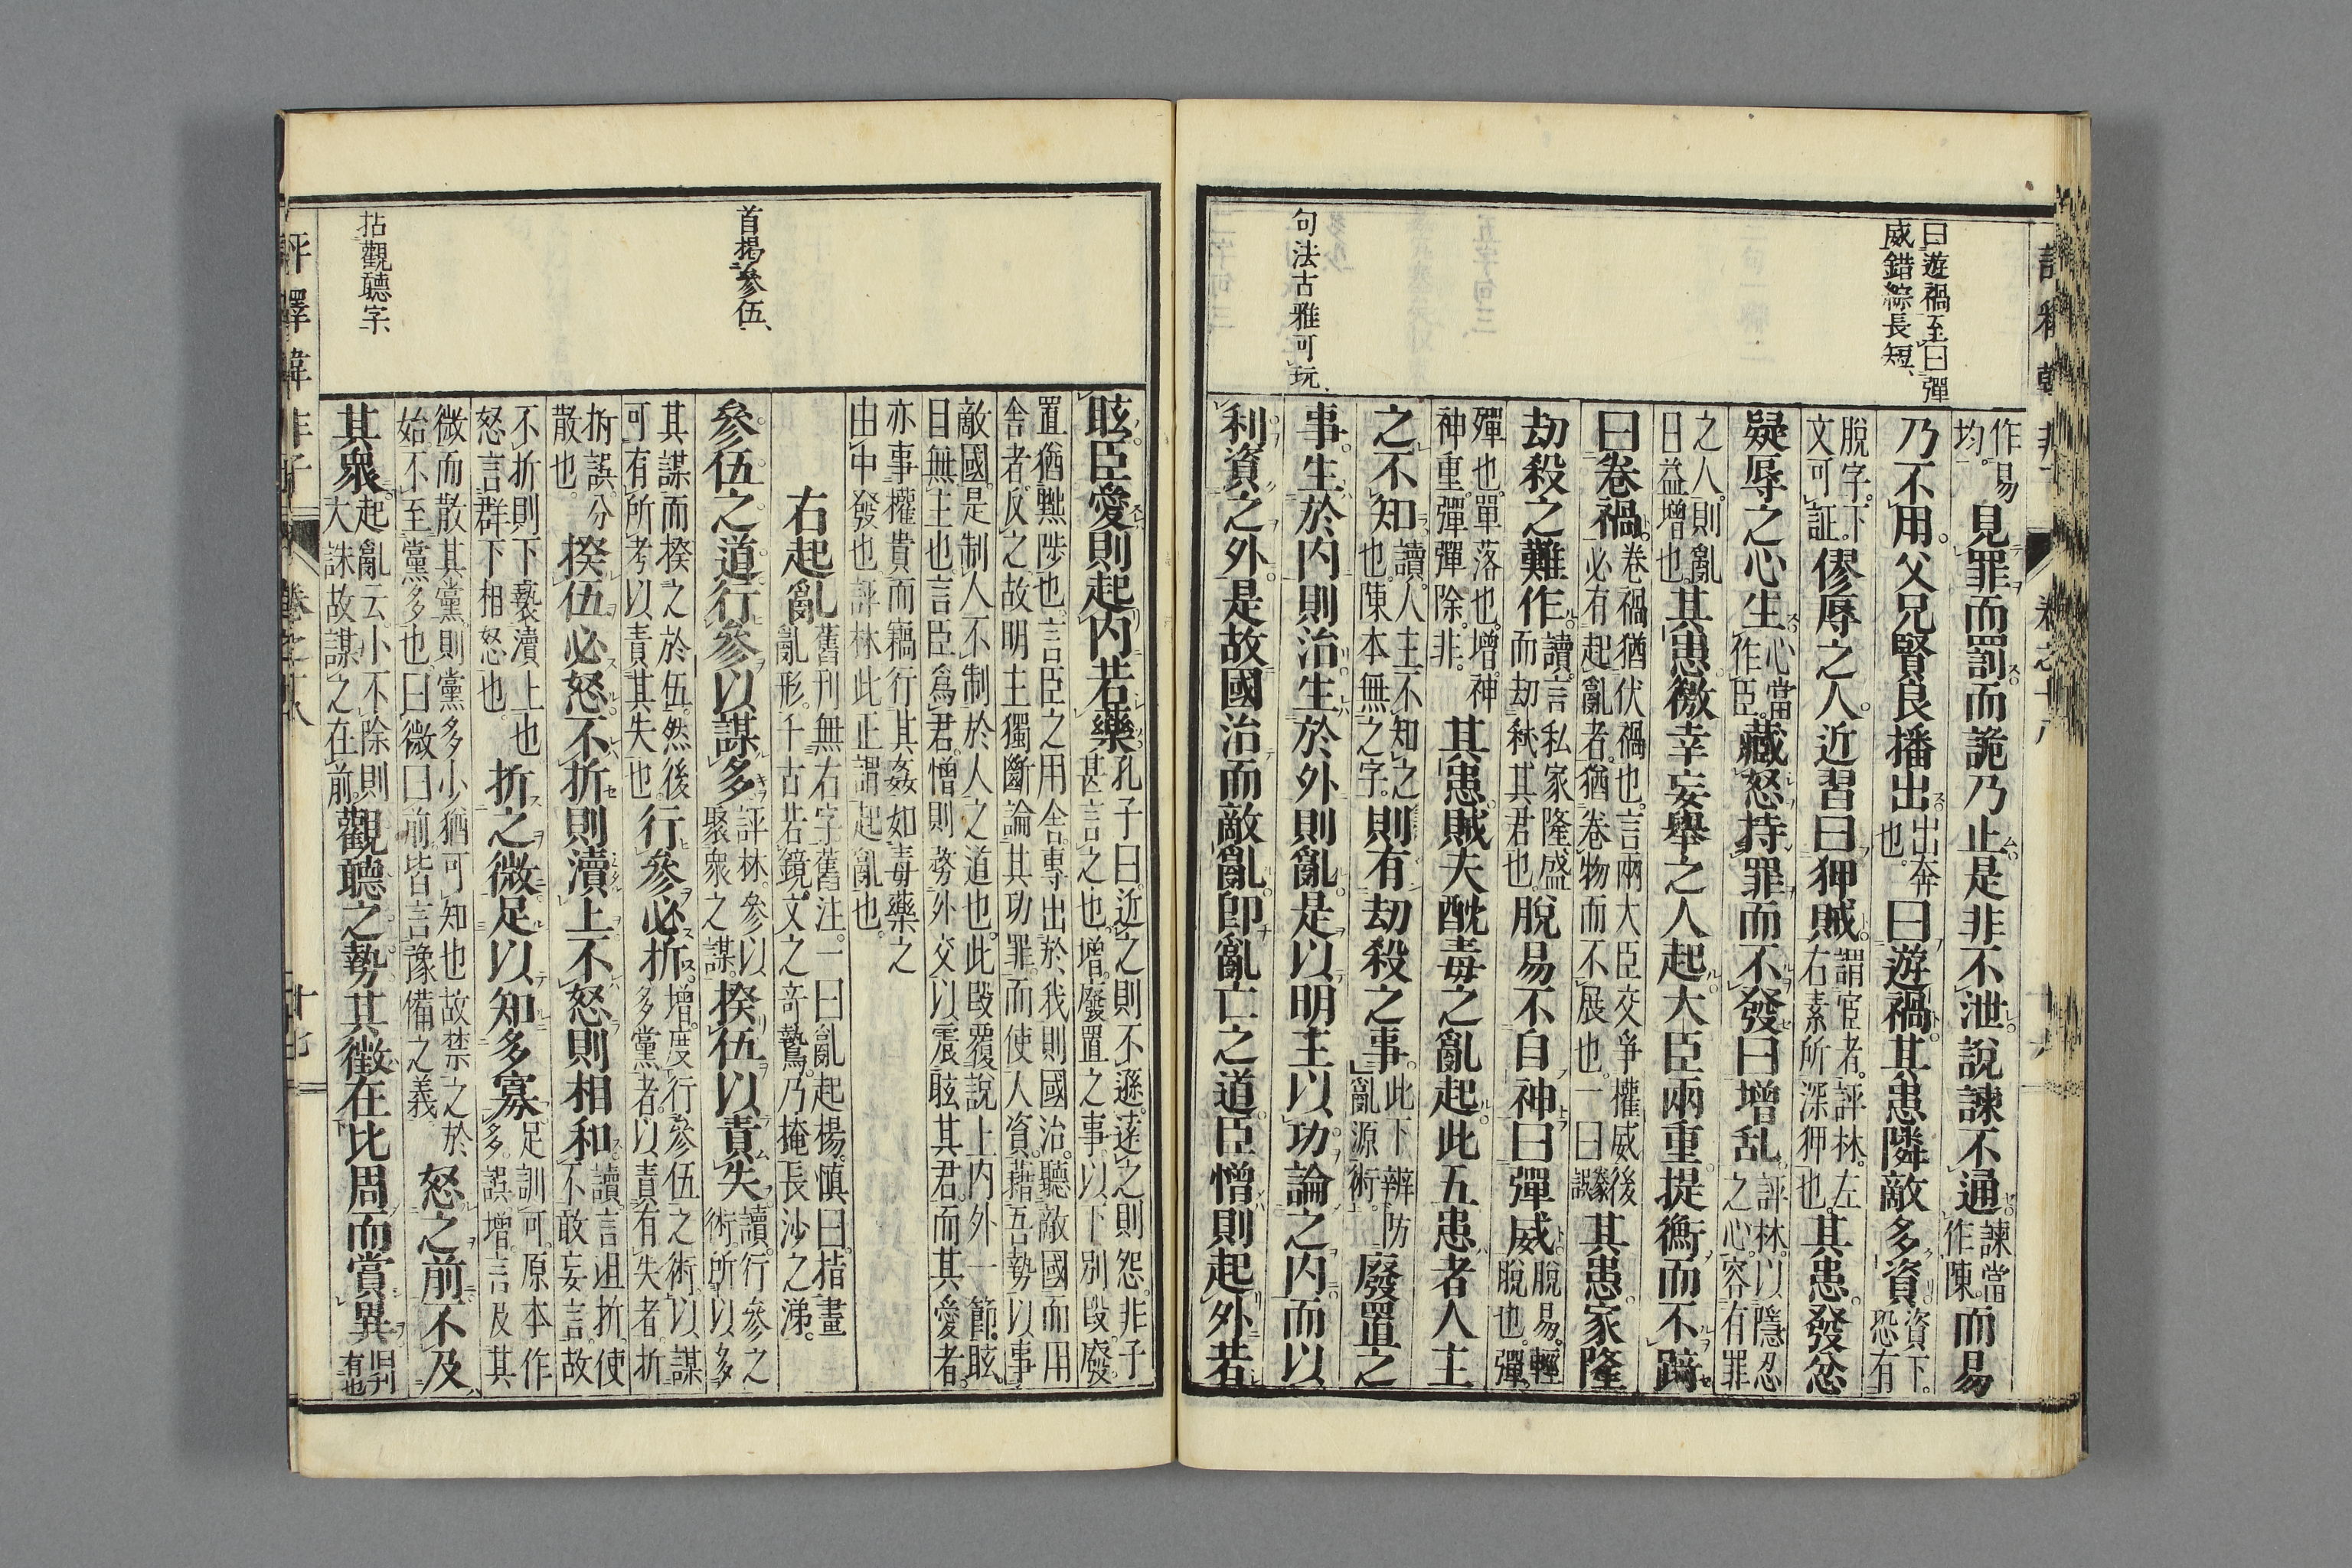 曰遊禍至曰彈
威錯綜長短
句法古雅可玩
作易
均
見罪而罰而詭乃止是非不泄說諫不通
諫當
作陳
而易
乃不用父兄賢良播出
出奔
也
曰遊禍其患隣敵多資
資下
恐有
脫字下
文可証
僇辱之人近習曰狎賊
謂宦者評林左
右素所深狎也
其患發忿
疑辱之心生
心當
作臣
藏怒持罪而不發曰增乱
評林以隱忍
之心容有罪
之人則亂
日益增也
其患徼幸妄舉之人起大臣兩重提衡而不踦
曰卷禍
卷禍猶伏禍也言兩大臣交爭權威後
必有起亂者猶卷物而不展也一曰
其患家隆
劫殺之難作
讀言私家隆盛
而劫弑其君也
脫易不自神曰彈威
脫易輕
脫也彈
殫也單落也增神
神重彈彈除非
其患賊夫酖毒之亂起此五患者人主
之不知
讀人主不知之
也陳本無之字
則有劫殺之事
此下辨防
亂源術
廢置之
事生於内則治生於外則亂是以明主以功論之内而以
利資之外是故國治而敵亂卽亂亡之道臣憎則起外若
首揭參伍
拈觀聽字
眩臣愛則起内若藥
孔子曰近之則不遜遠之則怨非子
甚言之也增廢置之事以下別段廢
置猶黜陟也言臣之用舍專出於我則國治聽敵國而用
舍者反之故明主獨斷論其功罪而使人資藉吾勢以事
敵國是制人不制於人之道也此段覆說上内外一節眩
目無主也言臣爲君憎則務外交以震眩其君而其愛者
亦事權貴而竊行其姦如毒藥之
由中發也評林此正謂起亂也
右起亂
舊刊無右字舊注一曰亂起楊愼曰描畫
亂形千古若鏡文之竒鷙乃掩長沙之涕
參伍之道行參以謀多
評林參以
聚衆之謀
揆伍以責失
讀行參之
術所以多
其謀而揆之於伍然後
可有所考以責其失也
行參必折
增度行參伍之術以謀
多黨者以責有失者折
拆誤分
散也
揆伍必怒不折則瀆上不怒則相和
讀言沮折使
不敢妄言故
不折則下褻瀆上也
怒言群下相怒也
折之微足以知多寡
足訓可原本作
多誤增言及其
微而散其黨則黨多少猶可知也故禁之於
始不至黨多也曰微曰前皆言豫備之義
怒之前不及
其衆
起亂云小不除則
大誅故謀之在前
觀聽之勢其徵在比周而賞異
旧刊
有也
評釋韓非子
卷之十八